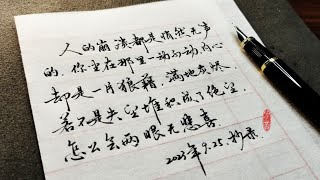 人的崩溃都是悄然无声
的，你坐在那里一动不动内心
却是一片狼藉，满地灰烬
若不是失望堆积成了绝望
怎么会两眼无悲喜。
2023年9.25.抄录